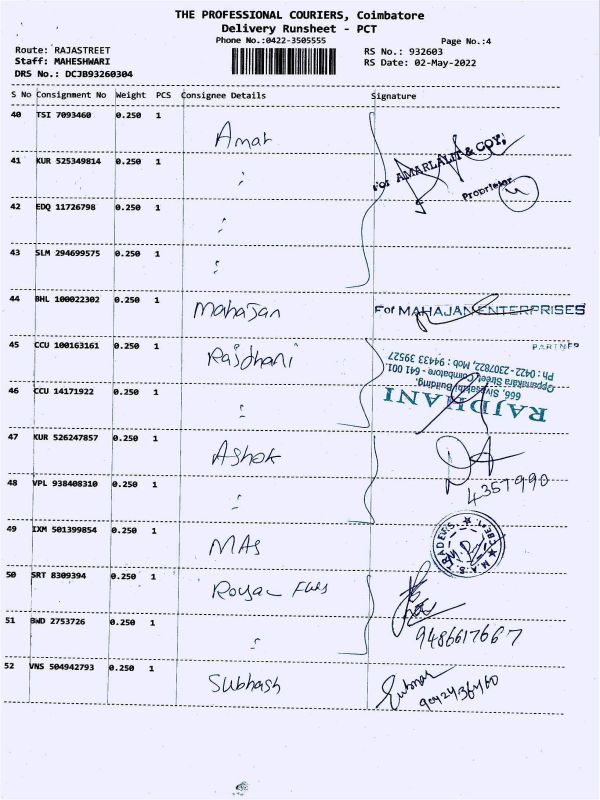 THE PROFESSIONAL COURIERS, Coimbatore
Delivery Runsheet - PCT
Phone No.:0422-3505555
Page No.:4
Route: RAJASTREET
RS No.: 932603
Staff: MAHESHWARI
RS Date: 02-May-2022
DRS No.: DCJB93260304
S No Consignment No Weight PCS Consignee Details Signature
40 TSI 7093460 0.250 1
Amar
41 KUR 525349814 0.250 1
For AMARLALIT & COY.
Proprietor
42 EDQ 11726798 0.250 1
43 SLM 294699575 0.250 1
44 BHL 100022302 0.250 1
Mahajan
For MAHAJAN ENTERPRISES
PARTNER
45 CCU 100163161 0.250 1
Rajdhani
RAJDHANI
666, Sivasakabi Building,
Oppanakara Street, Coimbatore - 641 001.
Ph : 0422 - 2307822, Mob : 94433 39527
46 CCU 14171922 0.250 1
47 KUR 526247857 0.250 1
Ashok
48 VPL 938408310 0.250 1
4357990
49 IXM 501399854 0.250 1
MAS
M.A.S. TRADERS
CBE-1
50 SRT 8309394 0.250 1
Royal
51 BWD 2753726 0.250 1
9486617667
52 VNS 504942793 0.250 1
Subhash
9042436460